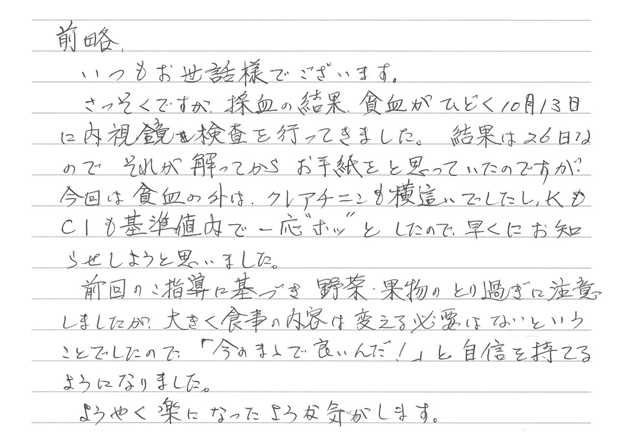 前略、
いつもお世話様でございます。
さっそくですが、採血の結果、貧血がひどく10月13日
に内視鏡検査を行ってきました。結果は26日な
ので それが解ってから お手紙をと思っていたのですが、
今回は貧血の外は、クレアチニンも横這いでしたし、Kも
Clも基準値内で一応"ホッ"としたので、早くにお知
らせしようと思いました。
前回のご指導に基づき 野菜・果物のとり過ぎに注意
しましたが、大きく食事の内容は変える必要はないという
ことでしたので、「今のままで良いんだ!」と自信を持てる
ようになりました。
ようやく楽になったような気がします。